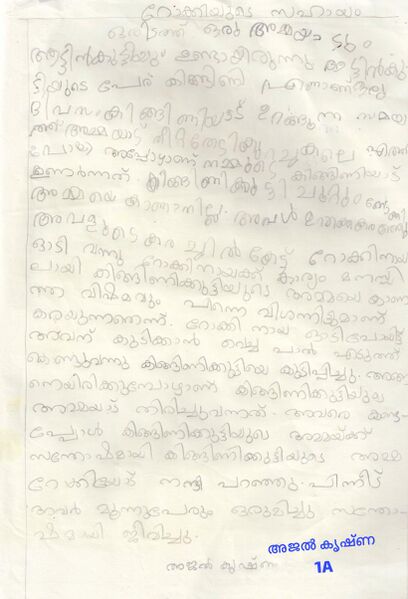 റോക്കിയുടെ സഹായം
ഒരിടത്ത് ഒരു അമ്മയാടും
ആട്ടിൻകുട്ടിയും ഉണ്ടായിരുന്നു ആട്ടിൻകു
ട്ടിയുടെ പേര് കിങ്ങിണി എന്നാണ് ഒരു
ദിവസം കിങ്ങിണിയാട് ഉറങ്ങുന്ന സമയ
ത്ത് അമ്മയാട് തീറ്റതേടി കുറച്ചകലെ
പോയി അപ്പോഴാണ് നമ്മുടെ കിങ്ങിണിയാട്
ഉണർന്നത്. കിങ്ങിണിക്കുട്ടി ചുറ്റും നോക്കി
അമ്മയെ കാണാനില്ല. അവൾ ഉറക്കെ കരഞ്ഞു
അവളുടെ കരച്ചിൽ കേട്ട് റോക്കിനായ
ഓടി വന്നു റോക്കിനായക്ക് കാര്യം മനസി
ലായി കിങ്ങിണിക്കുട്ടിയുടെ അമ്മയെ കാണാ
ത്ത വിഷമവും പിന്നെ വിശന്നിട്ടുമാണ്
കരയുന്നതെന്ന്. റോക്കി നായ ഓടിപോയിട്ട്
അവന് കുടിക്കാൻ വെച്ച പാൽ എടുത്ത്
കൊണ്ടുവന്നു കിങ്ങിണിക്കുട്ടിയെ കുടിപ്പിച്ചു. അങ്ങ
നെയിരിക്കുമ്പോഴാണ് കിങ്ങിണിക്കുട്ടിയുടെ
അമ്മയാട് തിരിച്ചുവന്നത്. അവരെ കണ്ട
പ്പോൾ കിങ്ങിണിക്കുട്ടിയുടെ അമ്മയ്ക്ക്
സന്തോഷമായി കിങ്ങിണിക്കുട്ടിയുടെ അമ്മ
റോക്കിയോട് നന്ദി പറഞ്ഞു. പിന്നീട്
അവർ മൂന്നുപേരും ഒരുമിച്ചു സന്തോ
ഷമായി ജീവിച്ചു.
അജൽ കൃഷ്ണ
അജൽ കൃഷ്ണ
1A